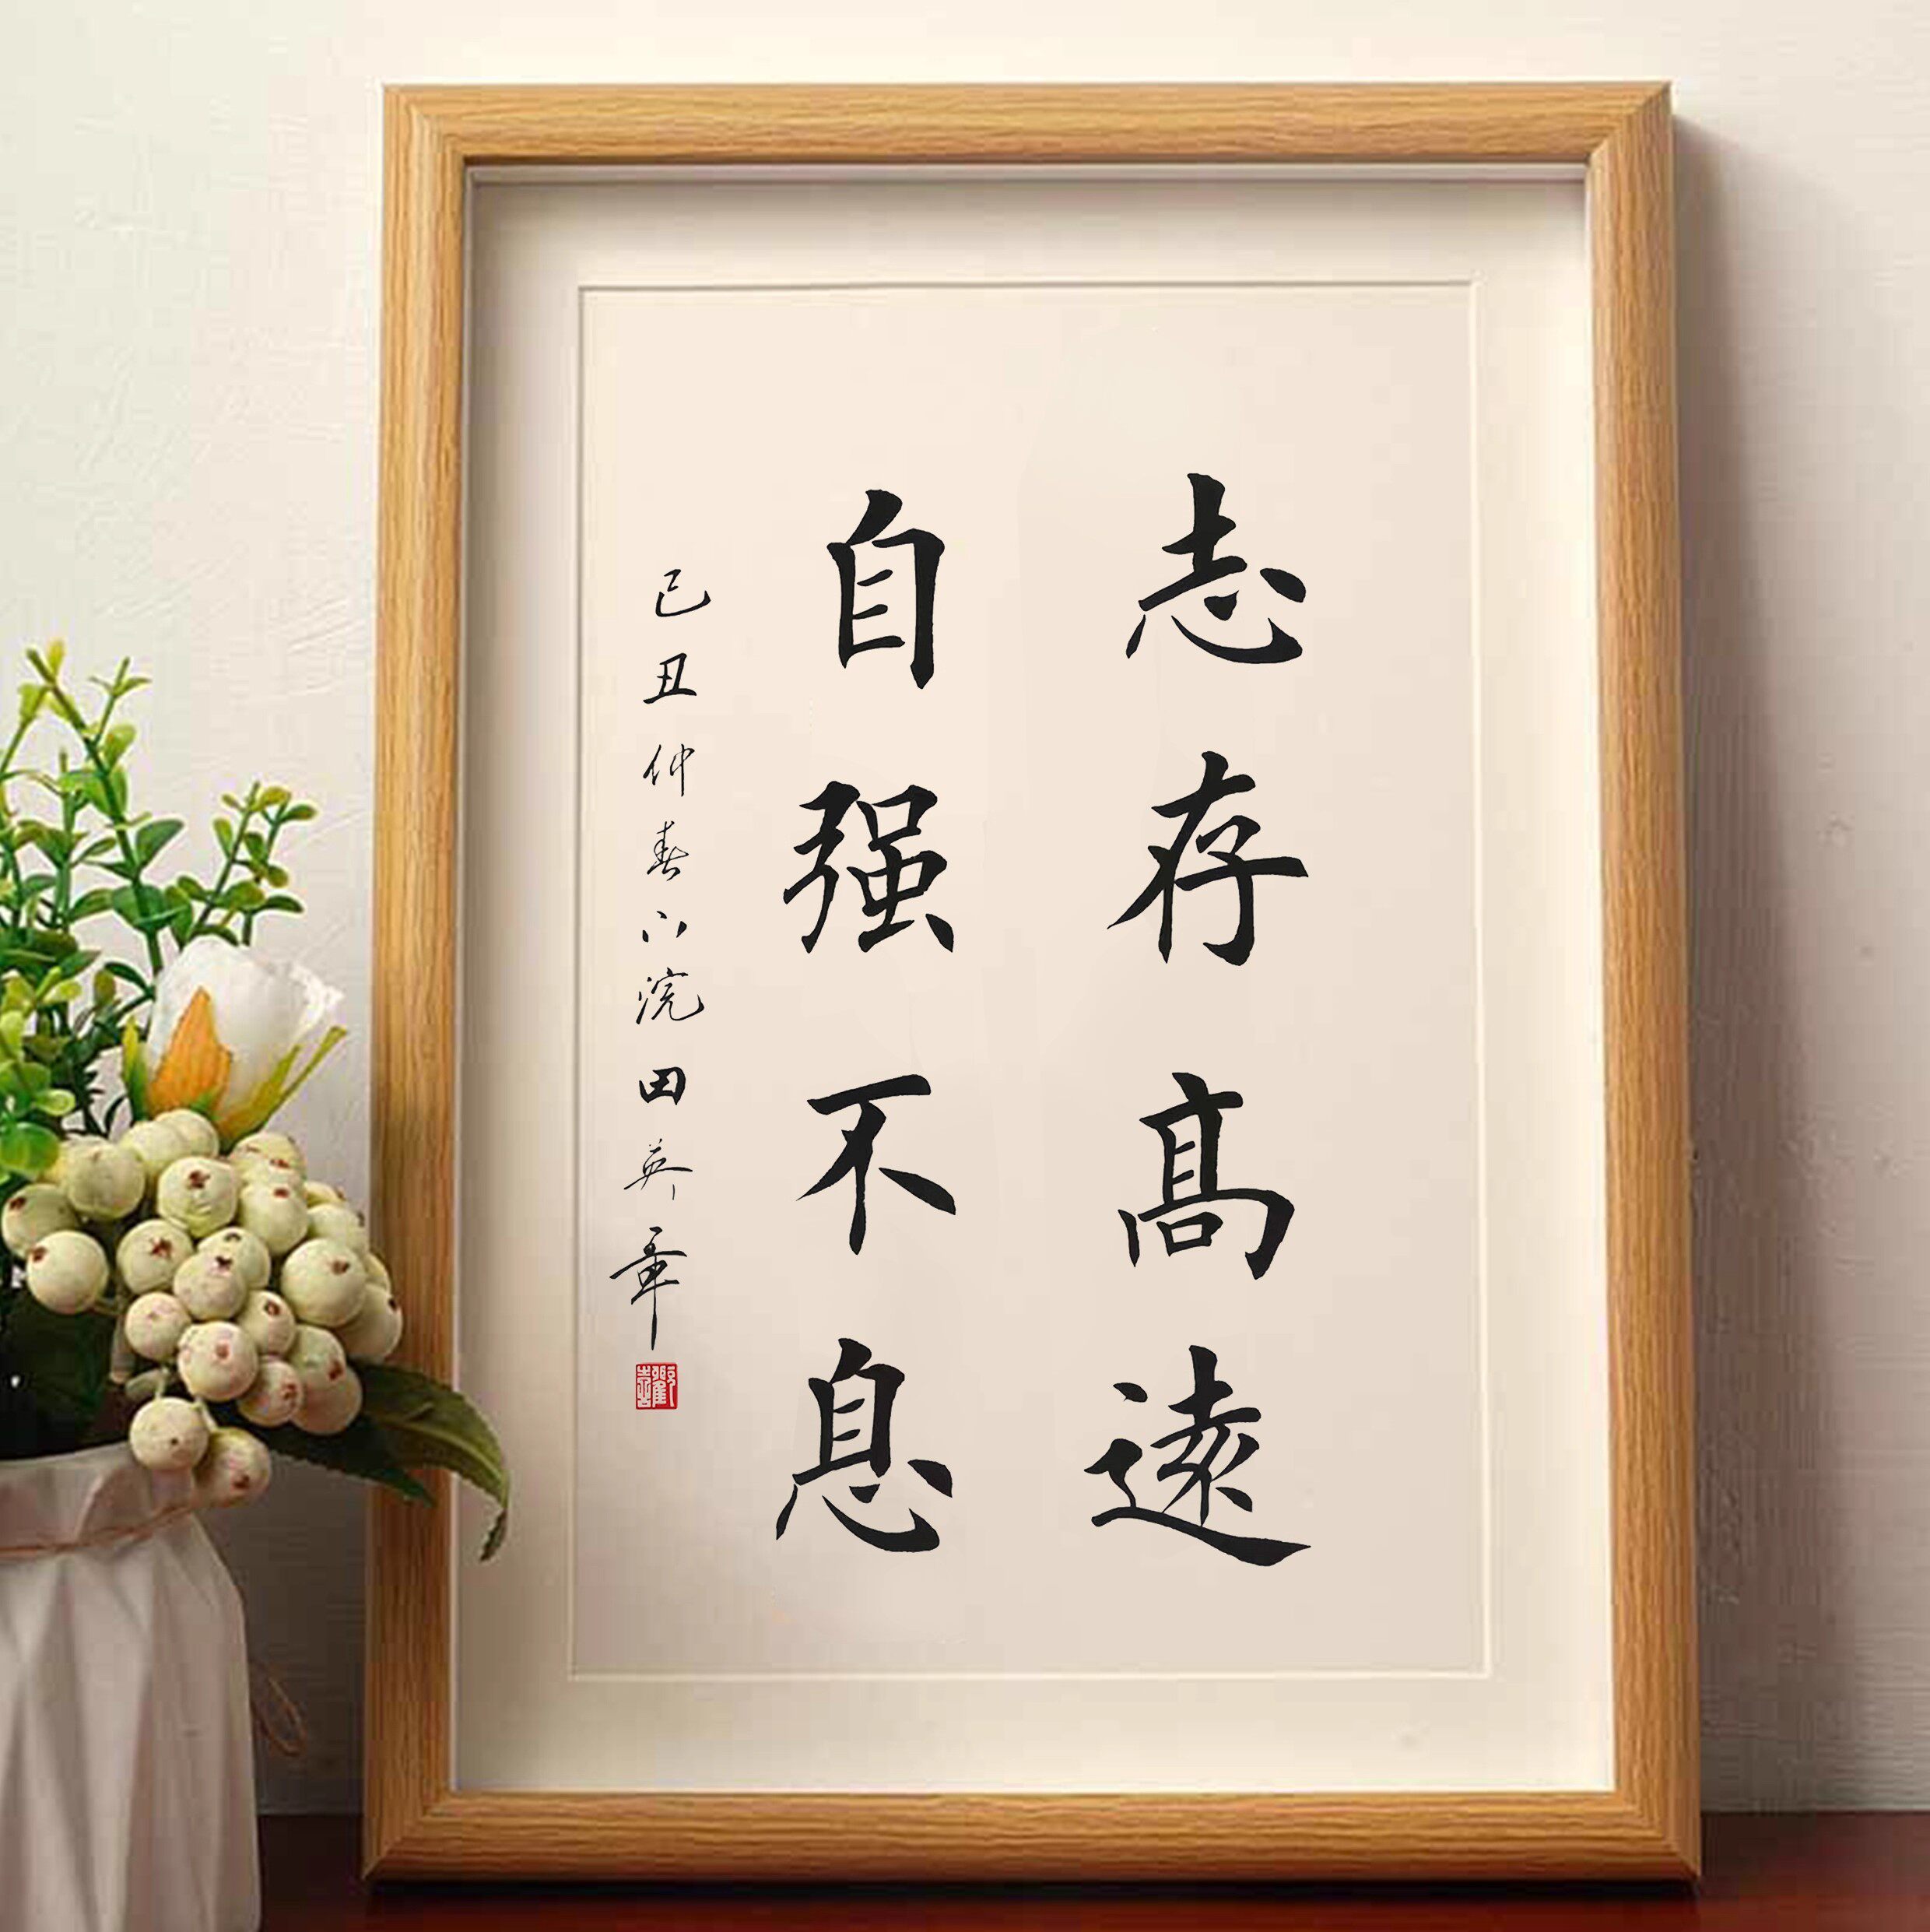 志存髙遠
自强不息
己丑仲春下浣田英章